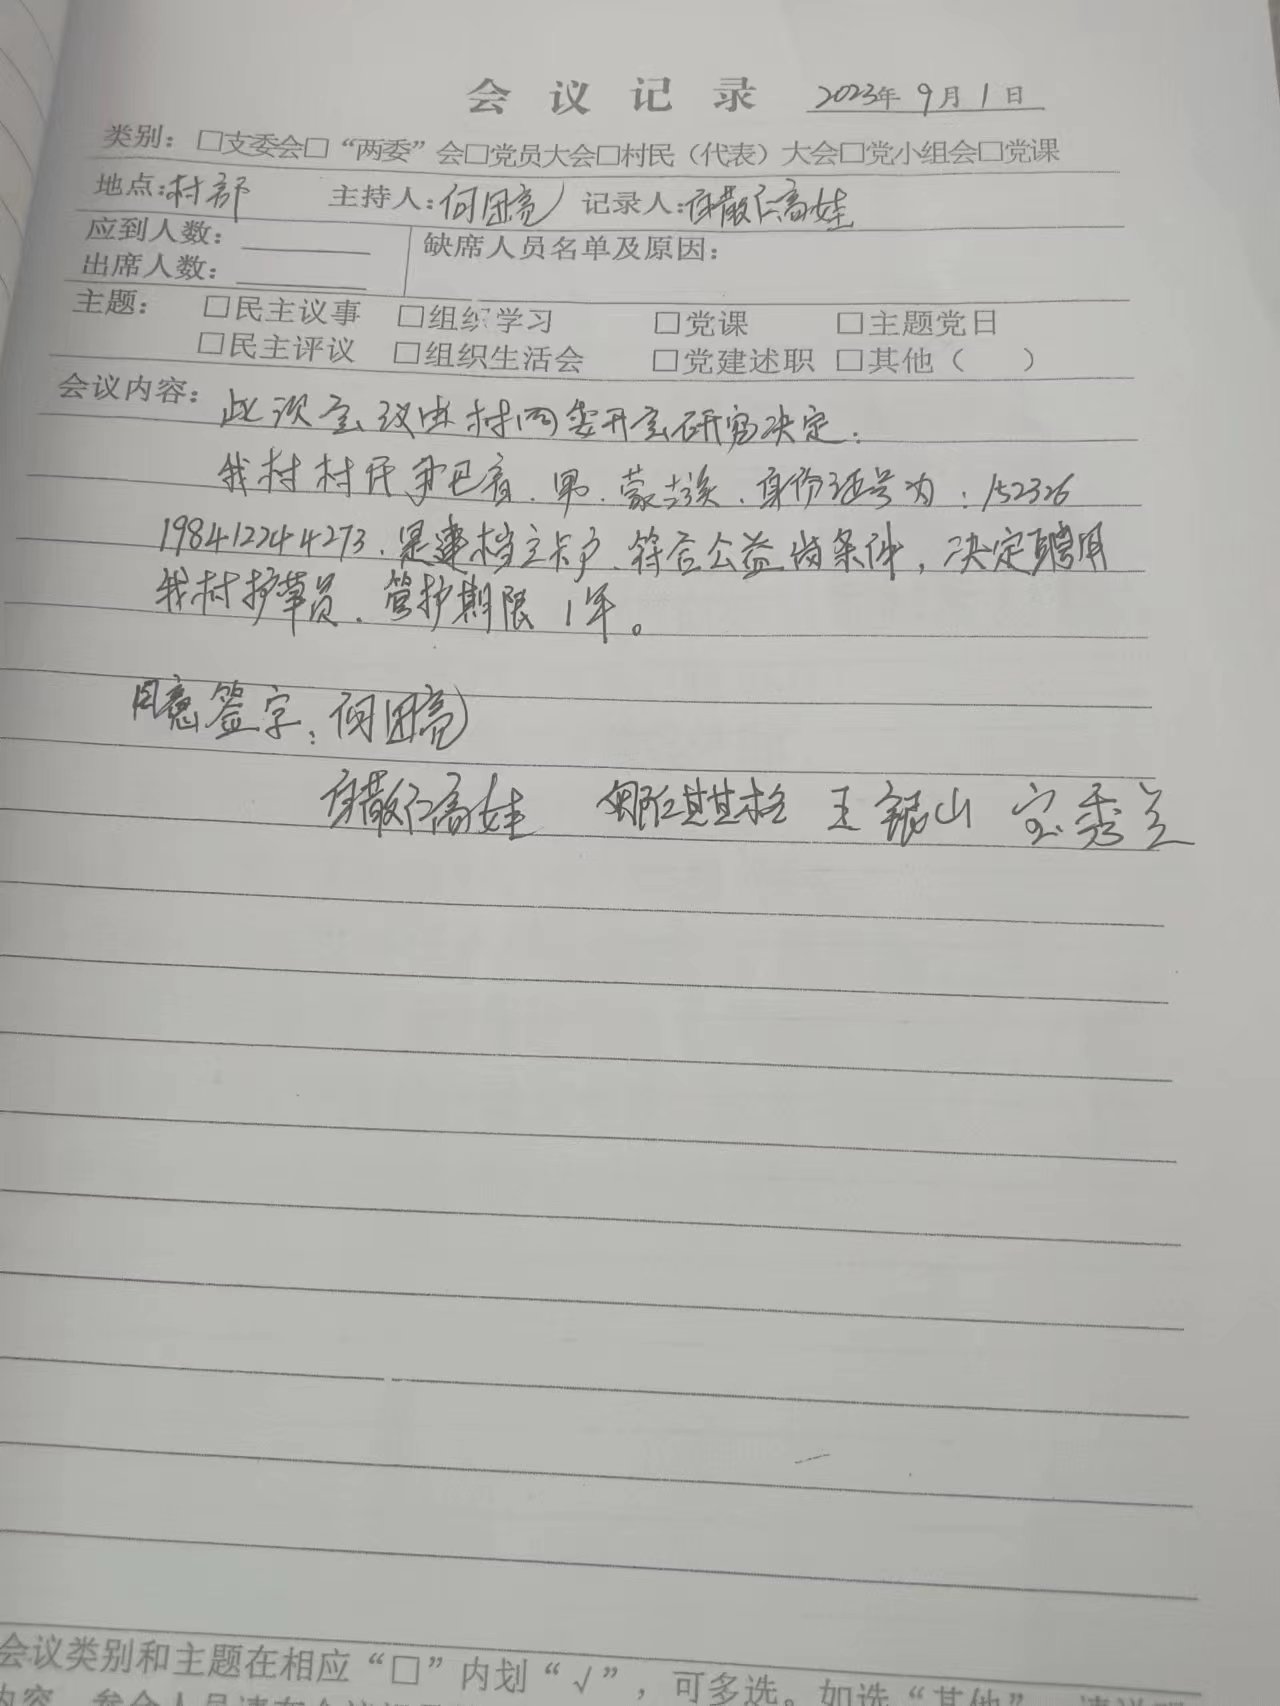 会议记录 2023年9月1日
类别：□支委会□“两委”会□党员大会□村民（代表）大会□党小组会□党课
地点:村部 主持人:何团亮 记录人:敖仁高娃
应到人数：
缺席人员名单及原因：
出席人数：
主题： □民主议事 □组织学习 □党课 □主题党日
□民主评议 □组织生活会 □党建述职 □其他（ ）
会议内容：此次会议由村两委开会研究决定：
我村村民 巴音、男、蒙古族、身份证号为：152326
198412244273、是建档立卡户、符合公益岗条件，决定聘用
我村护草员、管护期限1年。
同意签字：何团亮
敖仁高娃 娜仁其其格 王银山 宝秀兰
会议类别和主题在相应“□”内划“√”，可多选。如选“其他”，请说明